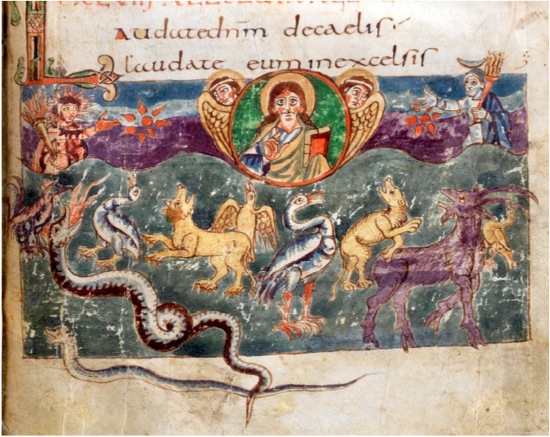 LAudatednm decaelis·
laudate eum inexcelsis